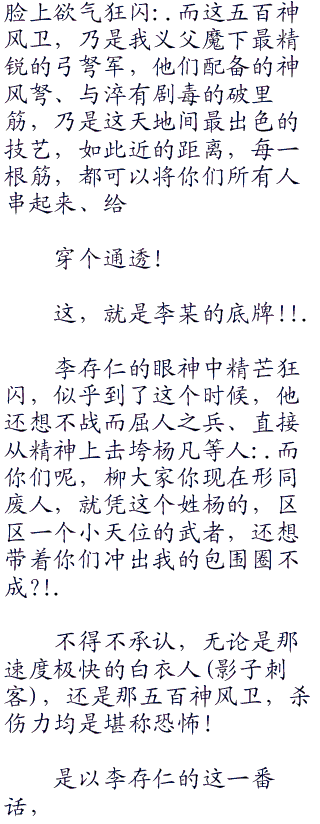 脸上欲气狂闪:.而这五百神
风卫，乃是我义父魔下最精
锐的弓弩军，他们配备的神
风弩、与淬有剧毒的破里
筋，乃是这天地间最出色的
技艺，如此近的距离，每一
根筋，都可以将你们所有人
串起来、给
穿个通透！
这，就是李某的底牌!!.
李存仁的眼神中精芒狂
闪，似乎到了这个时候，他
还想不战而屈人之兵、直接
从精神上击垮杨凡等人:.而
你们呢，柳大家你现在形同
废人，就凭这个姓杨的，区
区一个小天位的武者，还想
带着你们冲出我的包围圈不
成?!.
不得不承认，无论是那
速度极快的白衣人(影子刺
客)，还是那五百神风卫，杀
伤力均是堪称恐怖！
是以李存仁的这一番
话，